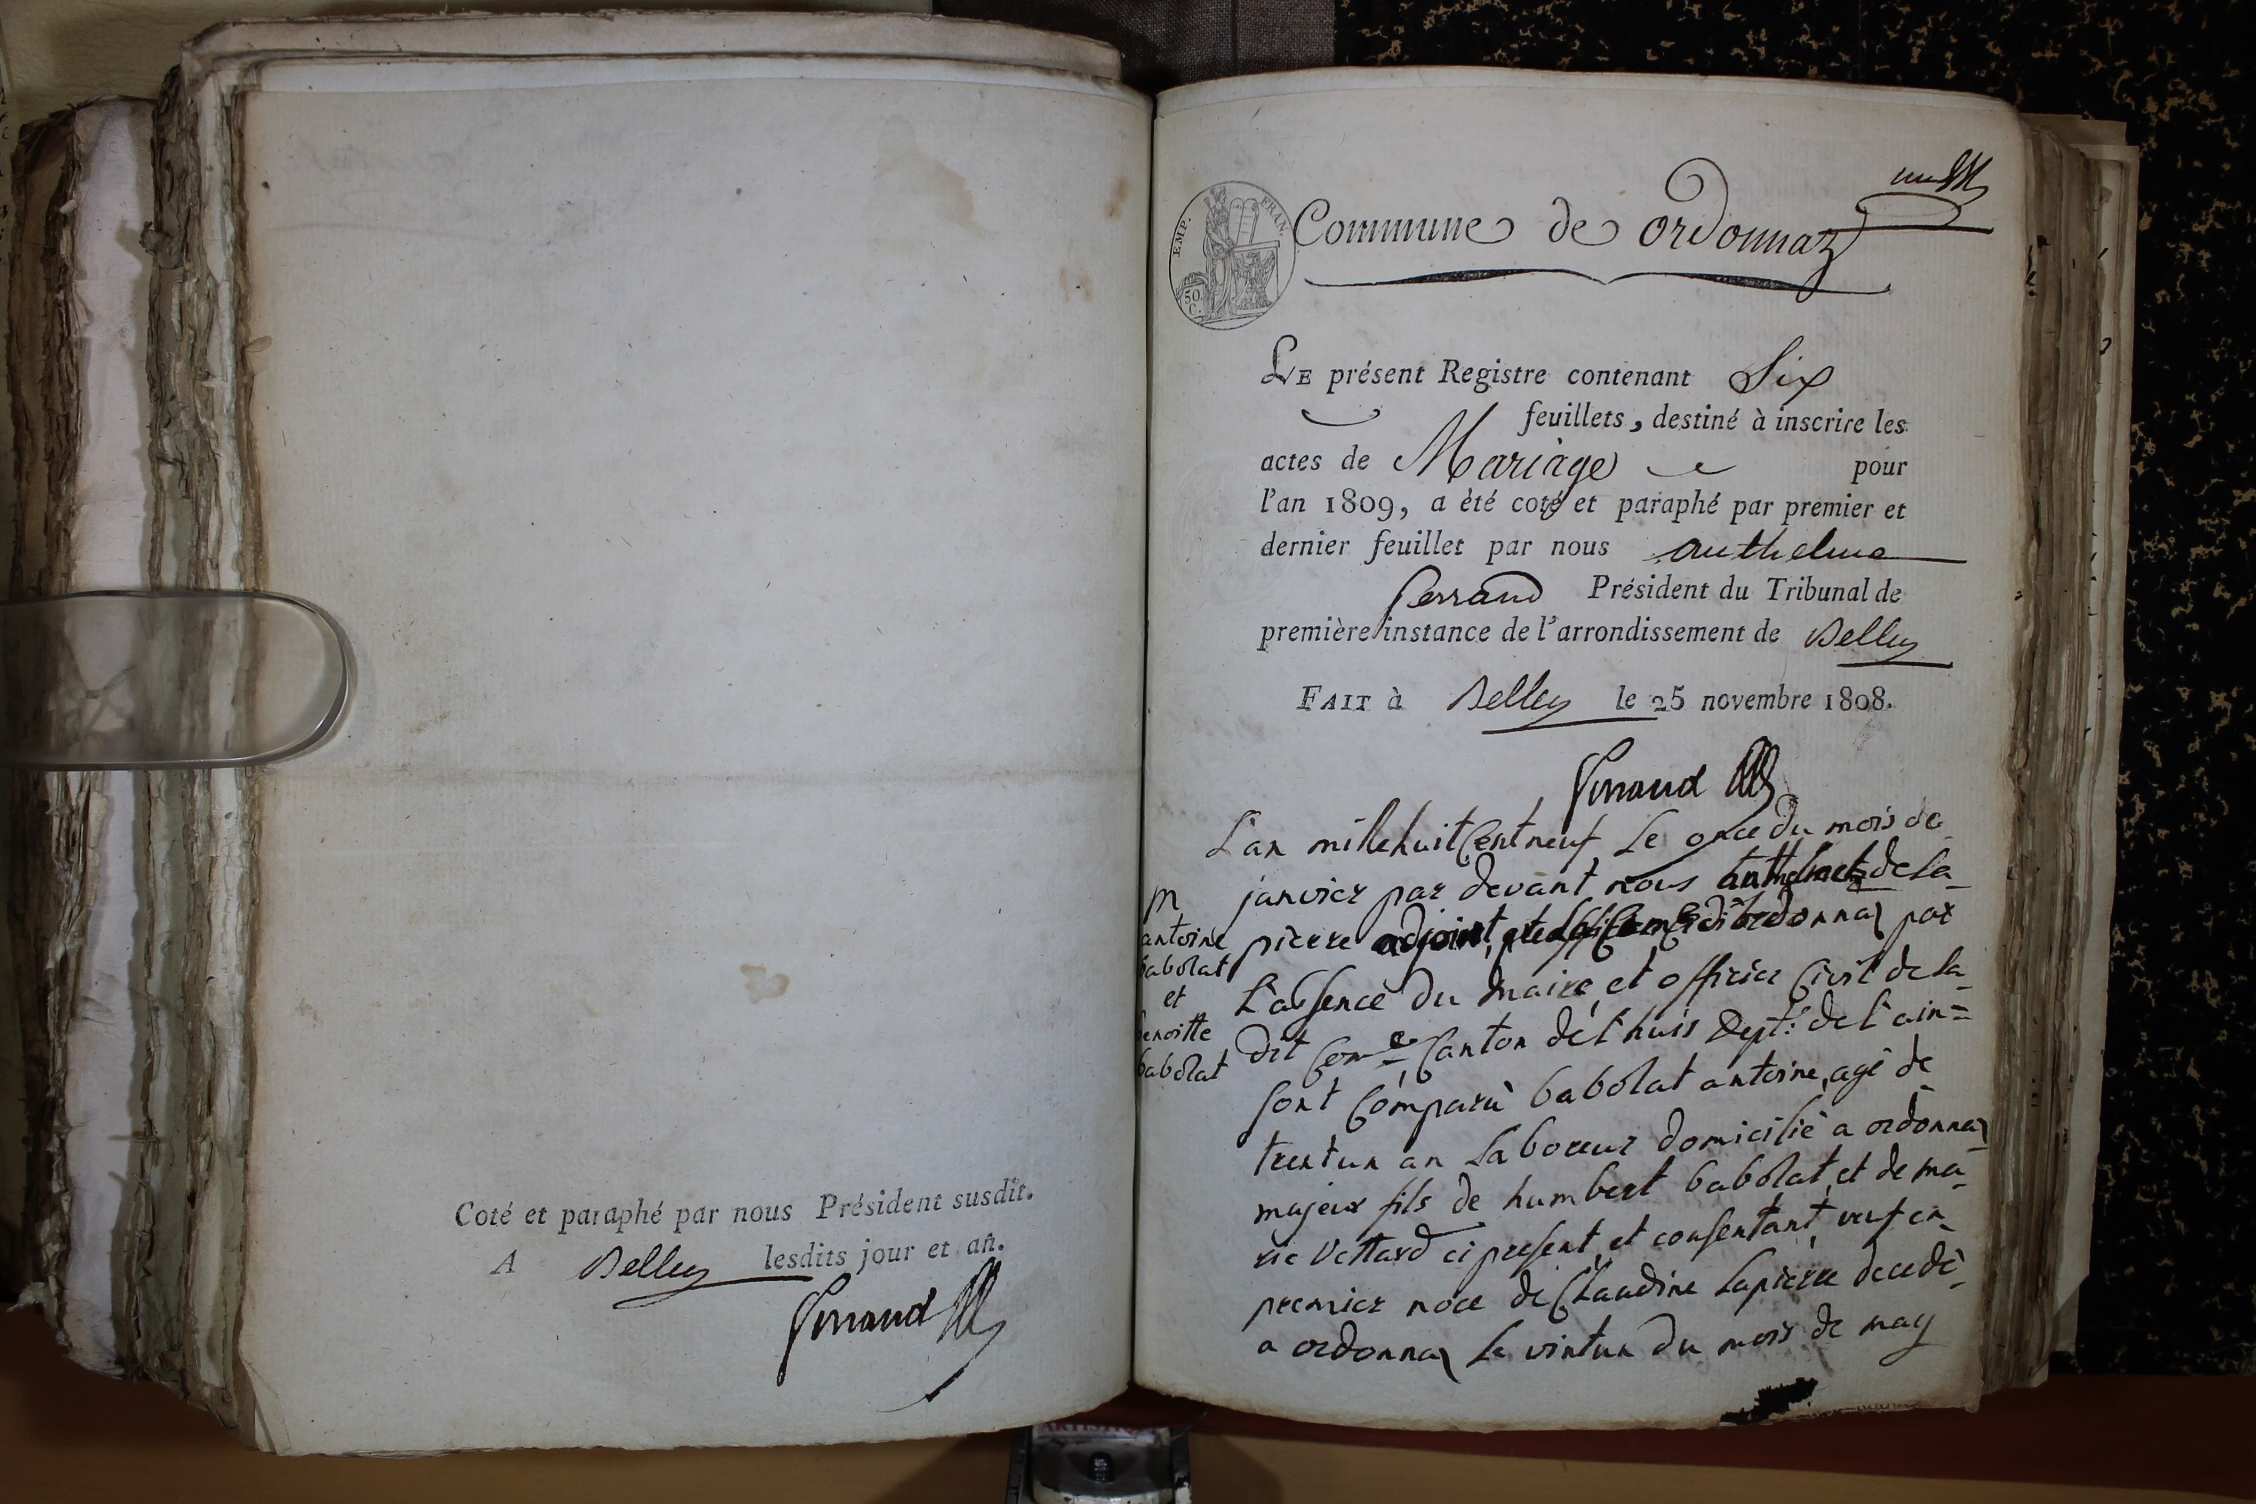 Coté et paraphé par nous Président susdit.
A Belley lesdits jour et an.
Ferrand
un
EMP. FRAN.
50
C.
Commune de ordonnaz
LE présent Registre contenant Six
feuillets, destiné à inscrire les
actes de Mariage pour
l'an 1809, a été coté et paraphé par premier et
dernier feuillet par nous anthelme
ferrand Président du Tribunal de
première instance de l'arrondissement de Belley
FAIT à Belley le 25 novembre 1808.
Ferrand
L'an mille huit Cent neuf Le onze du mois de
janvier par devant nous de la
pierre adjoint ordonnaz par
L'absence du maire et officier Civil de la
dit Com.e Canton de l'huis Dept. de l'ain=
sont Comparu babolat antoine agé de
trent un an laboreur domicilié a ordonnaz
majeur fils de humbert babolat et de ma-
rie Vettard ci present et consentant veuf en
premier noce de Claudine lapierre decedé
a ordonnaz le vintun du mois de may
M
antoine
babolat
et
benoitte
babolat